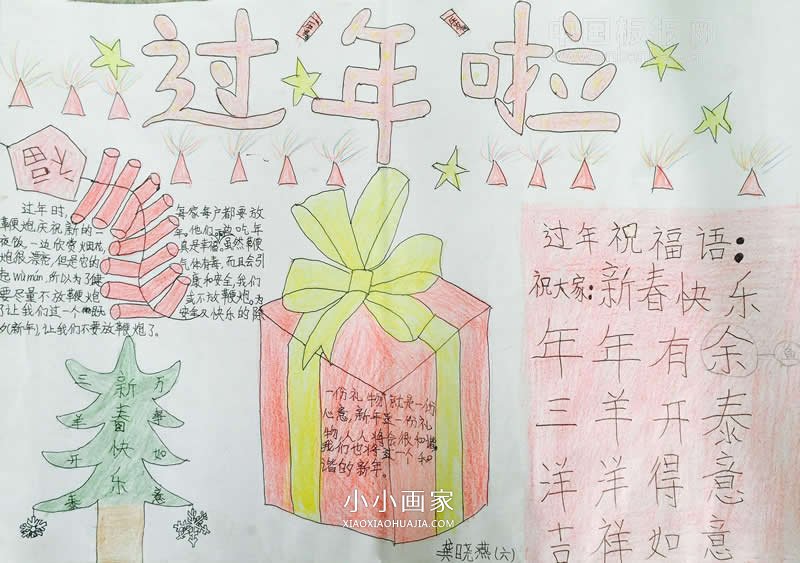 中国板报网
过年啦
福
过年时,
每家每户都要放
鞭炮庆祝新的一
年。他们一边吃年
夜饭,一边欣赏烟花,
真是幸福。虽然鞭
炮很漂亮,但是它的
气体有毒,而且会引
起wùmán,所以为了健
康和安全,我们
要尽量不放鞭炮
或不放鞭炮。为
了让我们过一个
安全又快乐的除
夕(新年),让我们不要放鞭炮了。
新春快乐
三羊开泰
万事如意
一份礼物,就是一份
心意,新年是一份礼
物,人人将会很和谐。
我们也将过一个和
谐的新年。
过年祝福语:
祝大家:新春快乐
年年有余
鱼
三羊开泰
洋洋得意
吉祥如意
小小画家
XIAOXIAOHUAJIA.COM
龚晓燕(六)